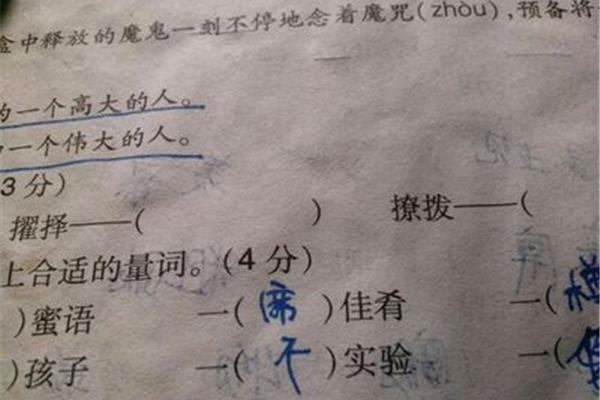 盒中释放的魔鬼一刻不停地念着魔咒(zhòu),预备将
的一个高大的人。
一个伟大的人。
3分)
擢择——(      )      撩拨——(
上合适的量词。(4分)
)蜜语      一(席)佳肴      一(
)孩子      一(个)实验      一(